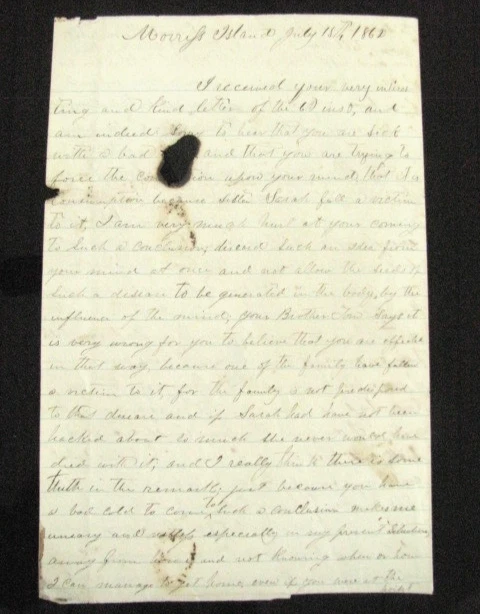 Morris Island July 15th, 1863
I received your very interes
ting and kind letter of the 6 inst, and
am indeed sorry to hear that you are sick
with a bad and that you are trying to
force the conclusion upon your mind, that it is
consumption because sister Sarah fell a victim
to it, I am very much hurt at your coming
to such a conclusion; discard such an idea from
your mind at once and not allow the seeds of
such a disease to be generated in the body, by the
influence of the mind, your Brother says it
is very wrong for you to believe that you are affected
in that way, because one of the family have fallen
a victim to it, for the family is not predisposed
to that disease and if Sarah had have not been
hacked about so much she never would have
died with it, and I really think there is some
truth in the remark; just because you have
a bad cold to come to such a conclusion makes me
uneasy and especially in my present situation
away from home and not knowing when or how
I can manage to get home, even if you were at the